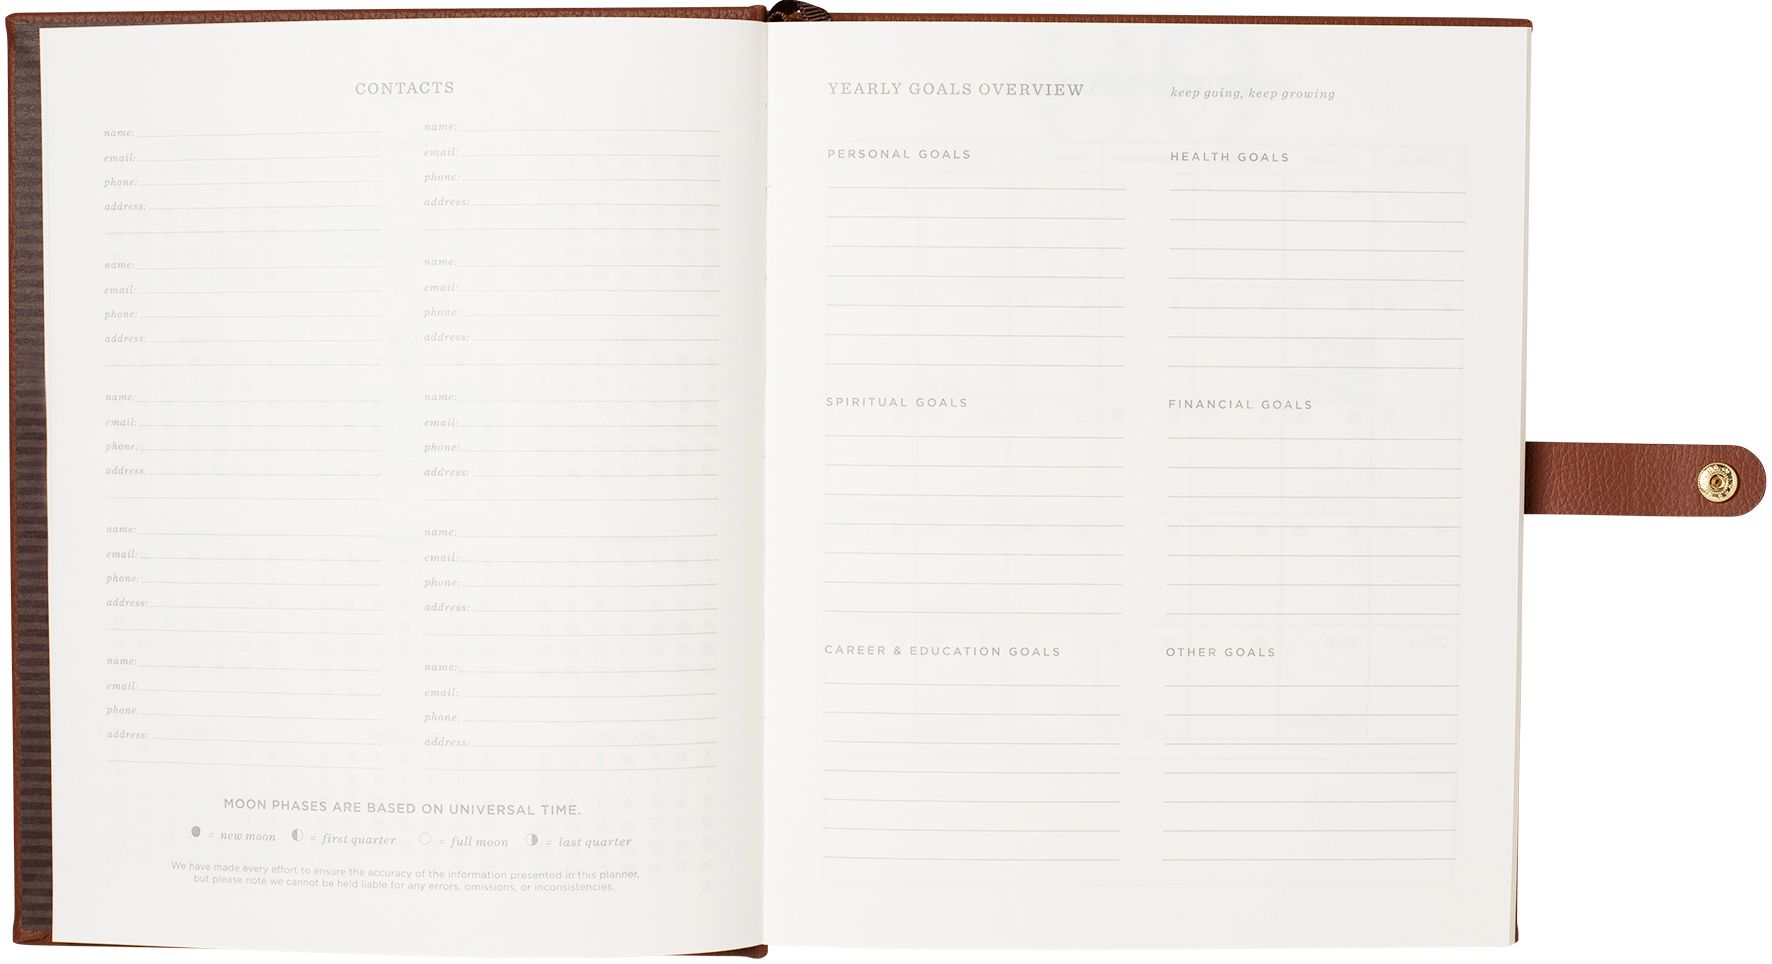 CONTACTS
name:
email:
phone:
address:
name:
email:
phone:
address:
name:
email:
phone:
address:
name:
email:
phone:
address:
name:
email:
phone:
address:
name:
email:
phone:
address:
name:
email:
phone:
address:
name:
email:
phone:
address:
name:
email:
phone:
address:
name:
email:
phone:
address:
MOON PHASES ARE BASED ON UNIVERSAL TIME.
= new moon = first quarter = full moon = last quarter
We have made every effort to ensure the accuracy of the information presented in this planner,
but please note we cannot be held liable for any errors, omissions, or inconsistencies.
YEARLY GOALS OVERVIEW keep going, keep growing
PERSONAL GOALS HEALTH GOALS
SPIRITUAL GOALS FINANCIAL GOALS
CAREER & EDUCATION GOALS OTHER GOALS